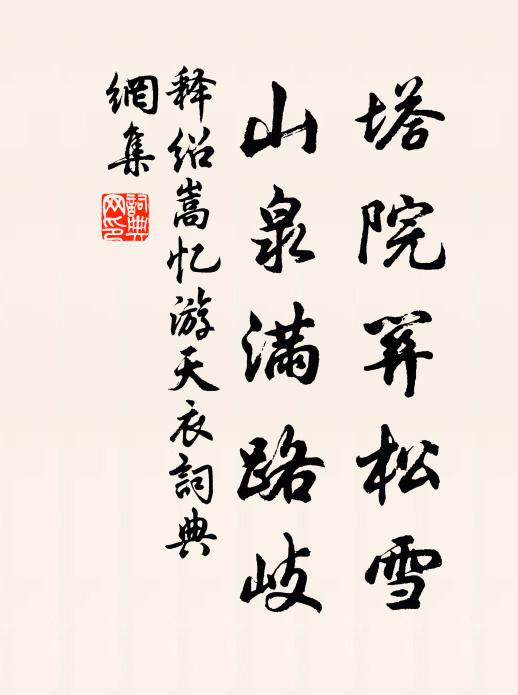 塔院算松雪
山泉滿路岐
释绍嵩忆游天衣詞典
網集
詞典
网印